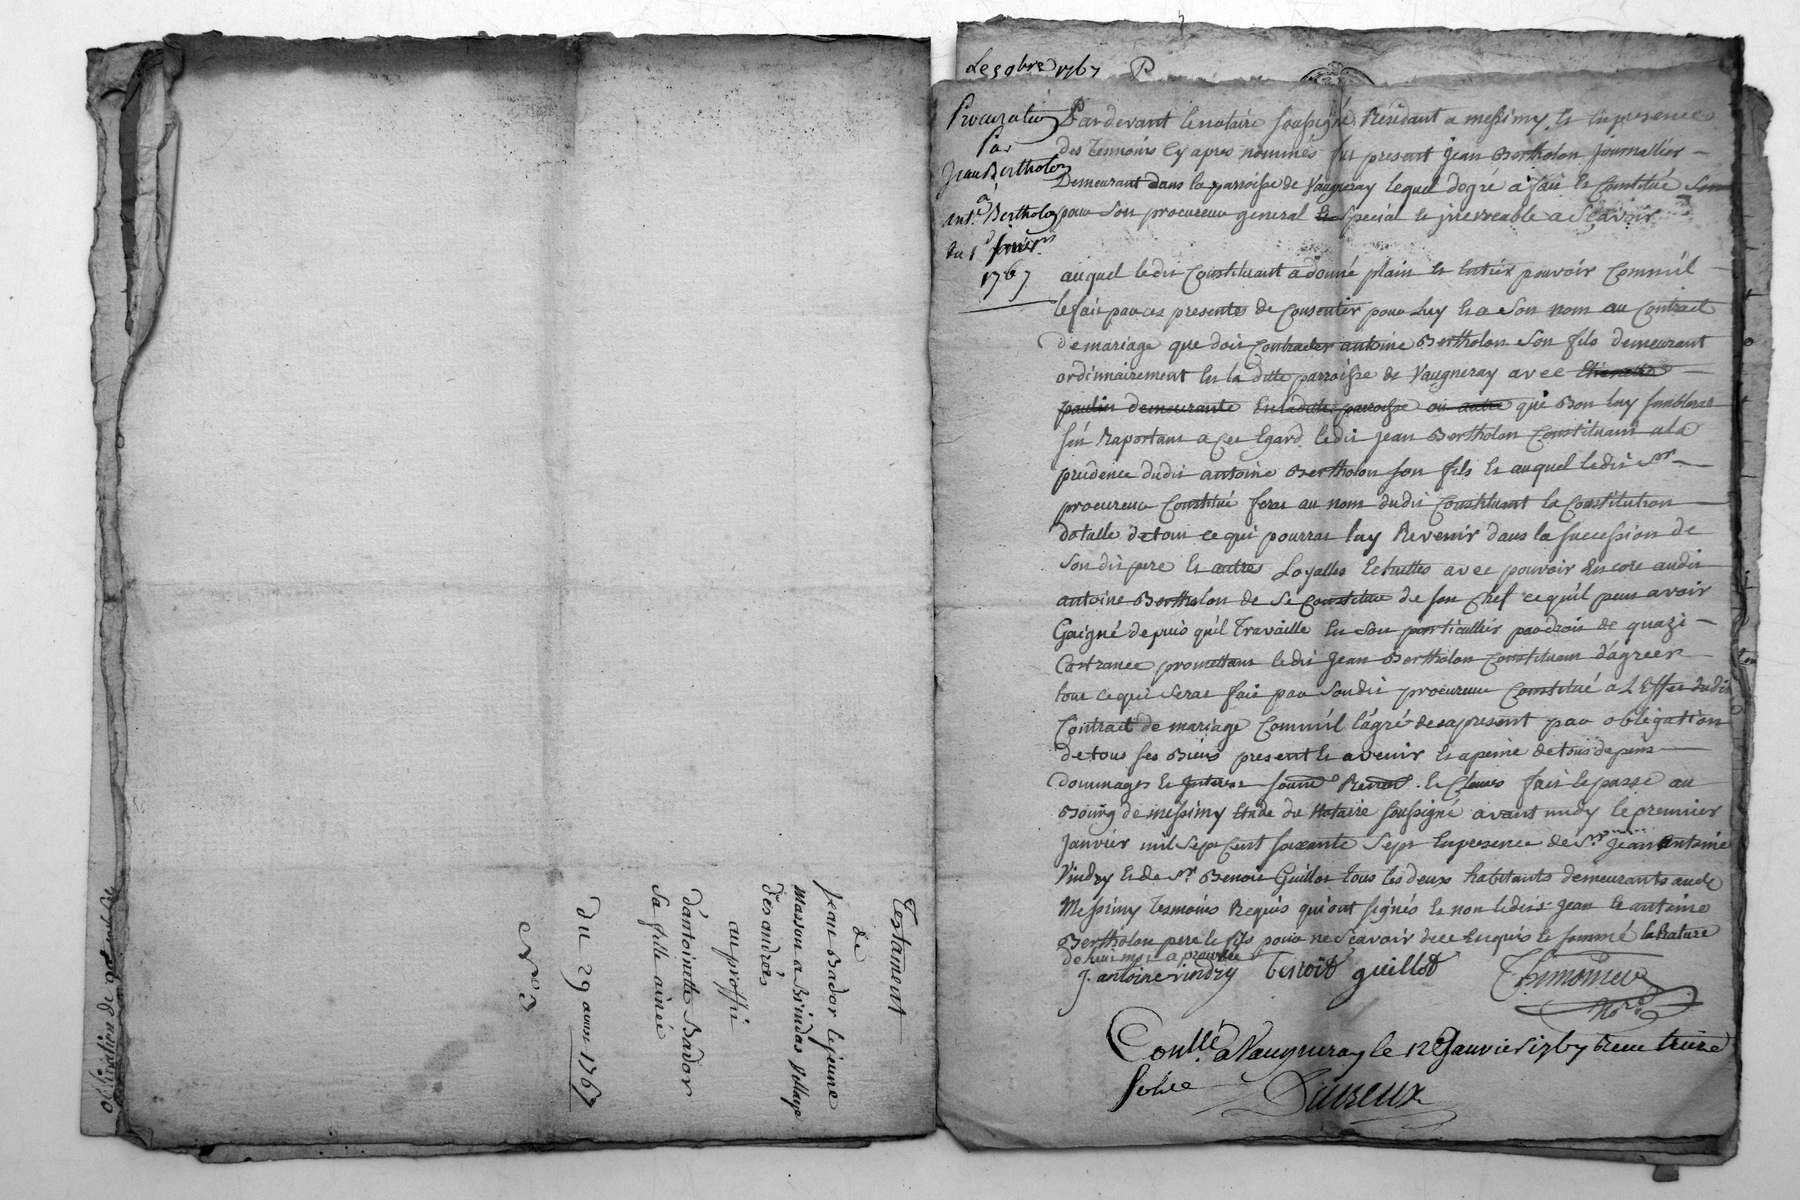 Testament
de
Jean Bador lejeune
masson a Brindas village
des andrés
au proffit
d'antoinette Bador
sa fille ainée
Du 29 aoust 1767
Obligation de
Le 5 9bre 1767 P
Procuration
Par
Jean Bertholon
a
ant.e Bertholon
du 1.r janvier
1767
Pardevant le notaire soussigné Résidant a messimy, et en presence
des Temoins cy apres nommés fut present jean Bertholon journallier
Demeurant dans la parroisse de Vaugneray lequel de gré a fait et Constitué
pour son procureur general et special et irrevocable a sçavoir
auquel ledit Constituant a donné plain et Entier pouvoir Comm'il
le fait par ces presentes de Consentir pour Luy et a son nom au Contract
de mariage que doit Contracter antoine Bertholon son fils demeurant
ordinnairement en la ditte parroisse de Vaugneray avec Etiennette
paulin demeurante en la ditte parroisse ou autre qui Bon luy semblerat
s'en Raportant a cet Egard ledit jean Bertholon Constituant a la
prudence dudit antoine Bertholon son fils et auquel ledit Sr
procureur Constitué ferat au nom dudit Constituant la Constitution
dotalle de tout ce qui pourrat luy Revenir dans la succession de
son dit pere et autres Loyalles Echuttes avec pouvoir Encore audit
antoine Bertholon de se Constituer de son Chef ce qu'il peut avoir
Gaigné depuis qu'il Travaille en son particullier par droit de quazi
Castrance promettant ledit Jean Bertholon Constituant d'agreer
tout ce qui serat fait par son dit procureur Constitué a L'Effet dudit
Contract de mariage Comm'il l'agré des apresent par obligation
de tous ses Biens present et avenir et a peine de tous depens
dommages et interest soum. Renon. et Clauses fait et passé au
Bourg de messimy Etude du Notaire soussigné avant midy le premier
Janvier mil sept Cent soixante Sept En presence de Sr. jean antoine
Vindry et de Sr. Benoit Guillot tous les deux habitants demeurants audit
Messimy Temoins Requis qui ont signés et non lesdits jean et antoine
Bertholon pere et fils pour ne sçavoir de ce Enquis et sommé la Rature
de huit mot aprouvée
J. antoine vindry Benoit guillot
Nore
Conllé. a Vaugneray le 12e Janvier 1767 Reçu treize
sols